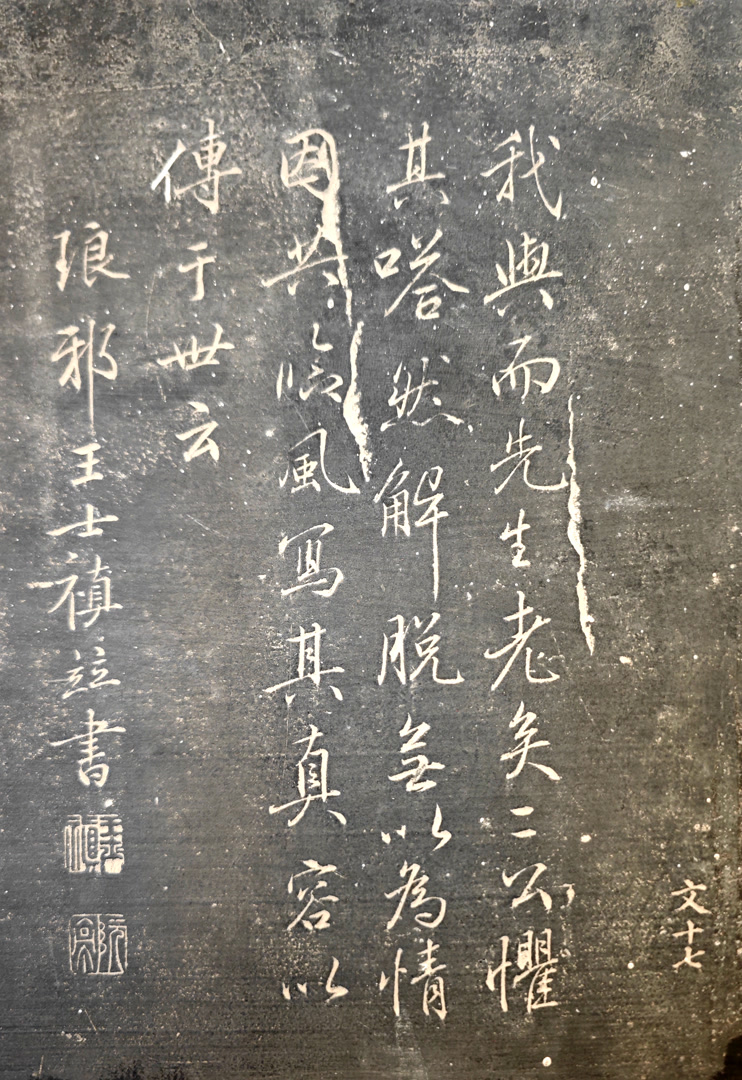 文十七
我與而先生老矣二公懼
其嗒然解脫無以為情
因共臨風寫其真容以
傳于世云
琅邪王士禛竝書
阮亭